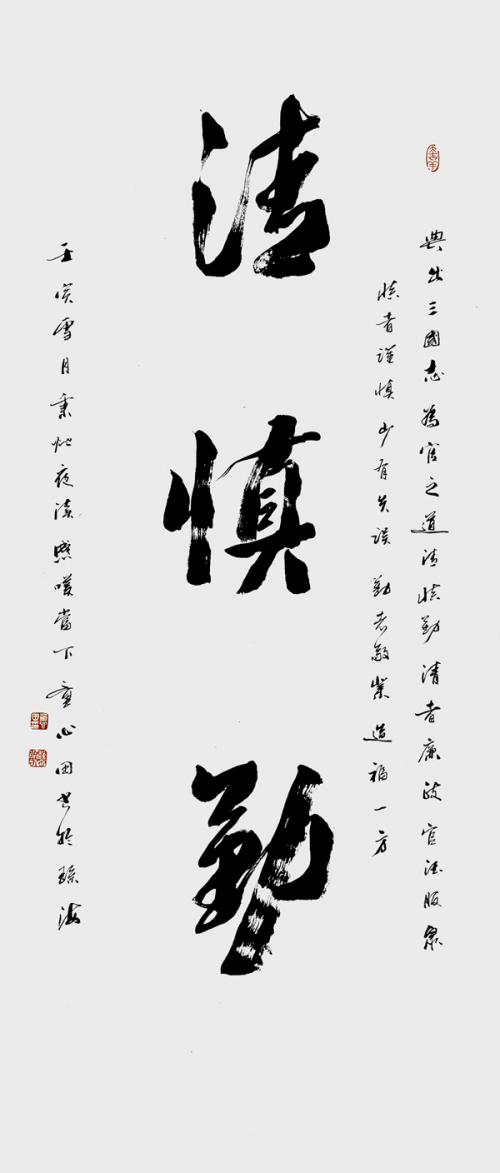 典出三國志為官之道清慎勤清者廉政官德服眾
慎者謹慎少有失誤勤者敬業造福一方
清慎勤
壬寅雪月秉燭夜讀感嘆當下童心田書於海